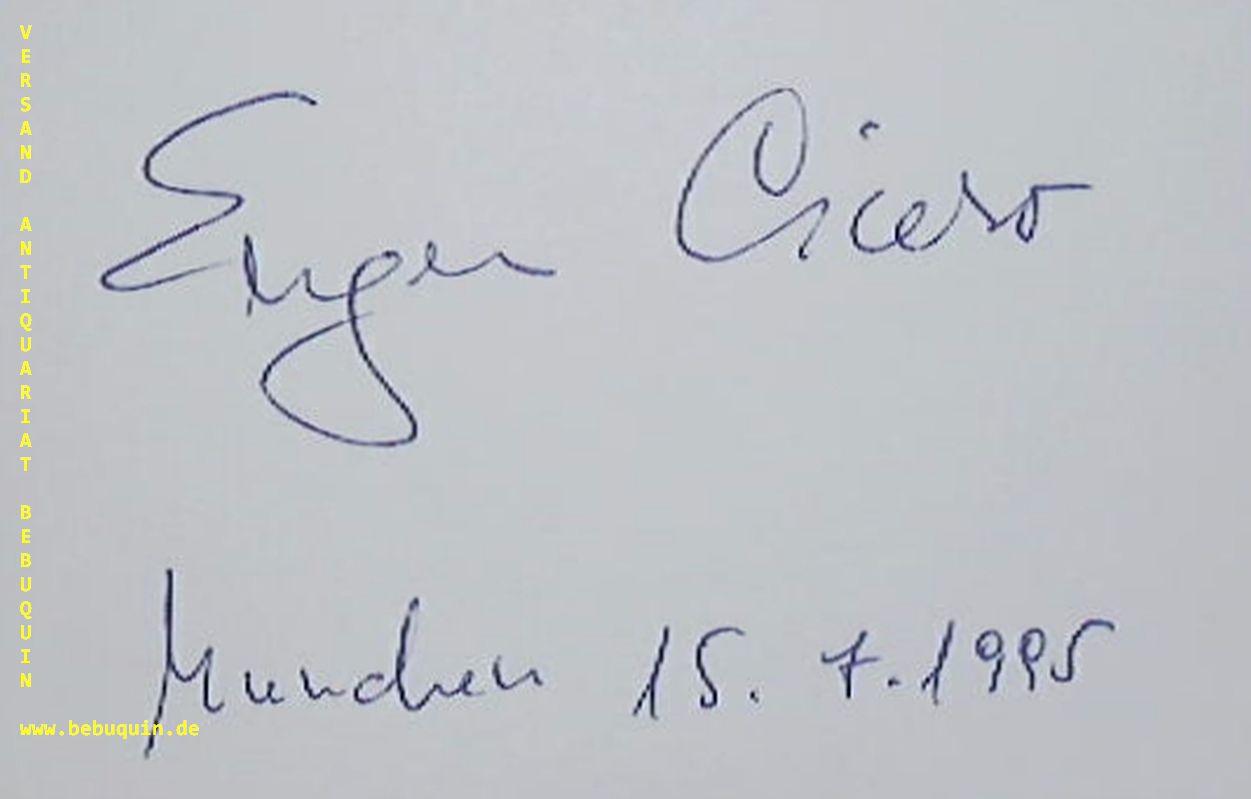 Eugen Cicero
Munchen 15. 7. 1995
VERSAND ANTIQUARIAT BEBUQUIN
www.bebuquin.de